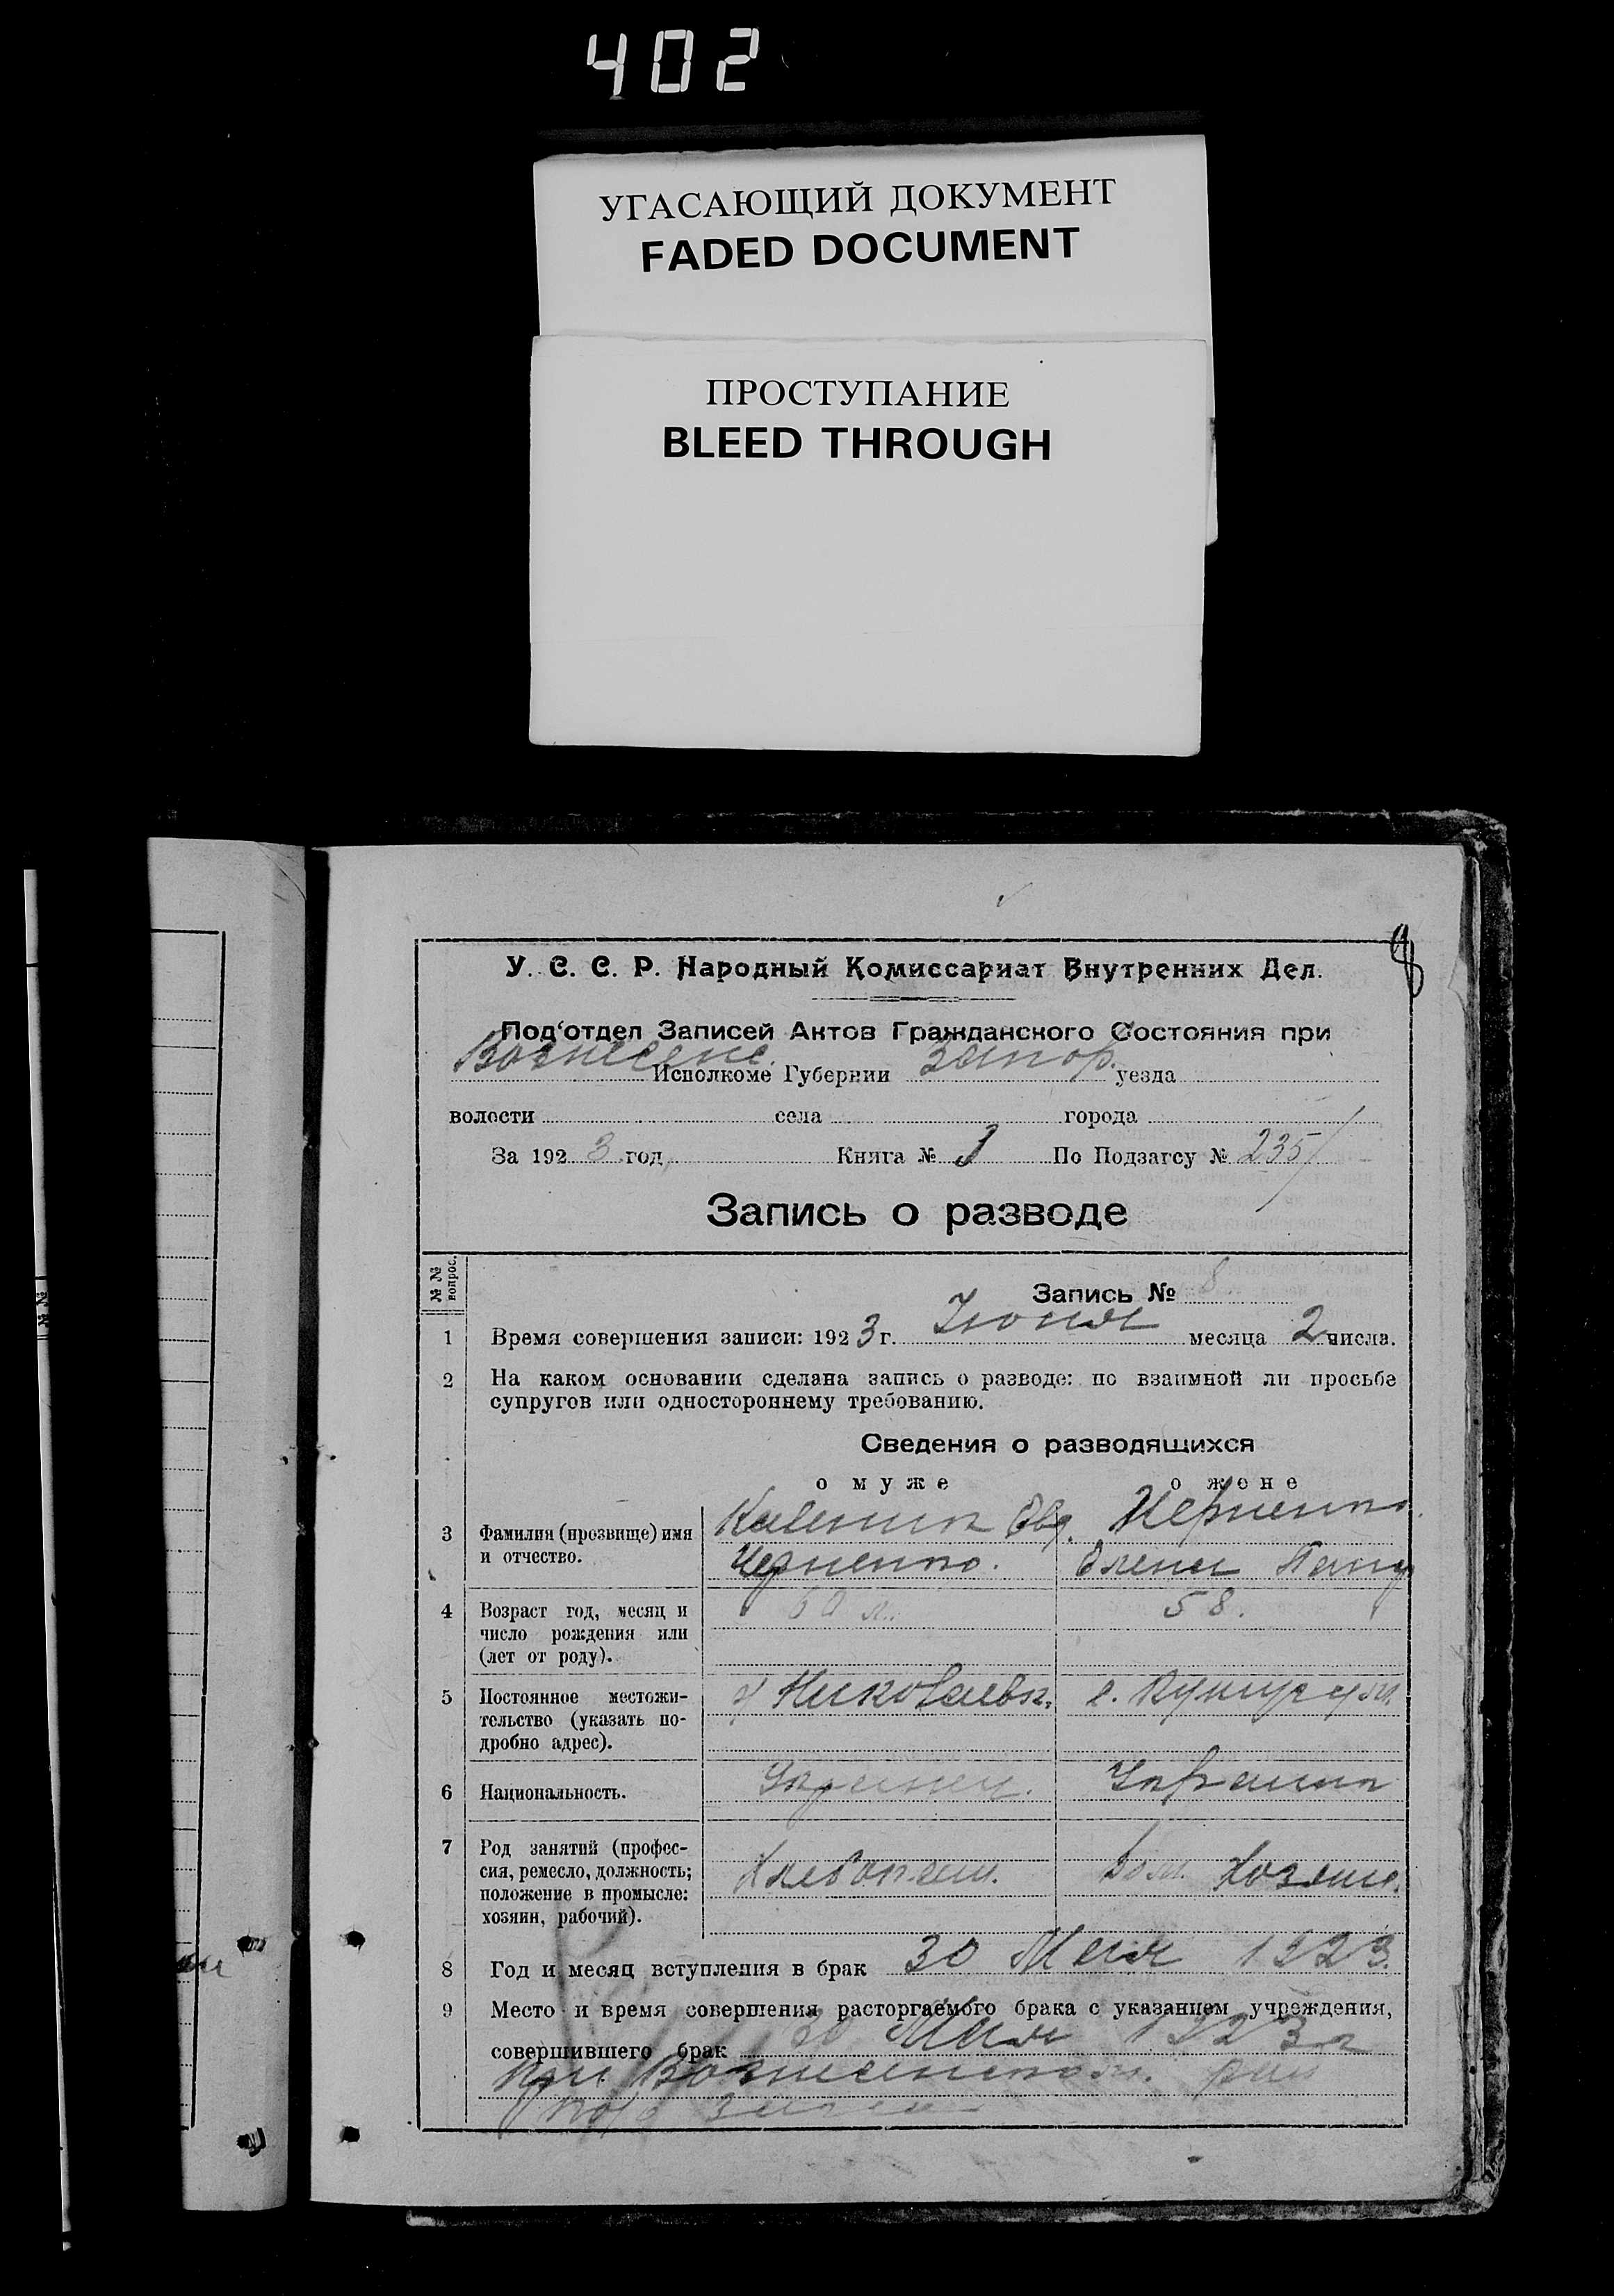 402
УГАСАЮЩИЙ ДОКУМЕНТ
FADED DOCUMENT
ПРОСТУПАНИЕ
BLEED THROUGH
У. С. С. Р. Народный Комиссариат Внутренних Дел.
Под'отдел Записей Актов Гражданского Состояния при
Вознесенс. Исполкоме Губернии Запор. уезда
волости села города
За 1923 год Книга № 1 По Подзагсу № 235
Запись о разводе
№ № вопрос.
Запись № 8
1 Время совершения записи: 1923 г. Июня месяца 2 числа.
2 На каком основании сделана запись о разводе: по взаимной ли просьбе
супругов или одностороннему требованию.
Сведения о разводящихся
о муже о жене
3 Фамилия (прозвище) имя Каленик Евд. Черненко
и отчество. Черненко. Елена
4 Возраст год, месяц и 60 л. 58.
число рождения или
(лет от роду).
5 Постоянное местожи- Николаевк. с.
тельство (указать по-
дробно адрес).
6 Национальность. Украинец. Украинк
7 Род занятий (профес-
сия, ремесло, должность; Хлебопаш. Дом. Хозяйс.
положение в промысле:
хозяин, рабочий).
8 Год и месяц вступления в брак 30 Мая 1923.
9 Место и время совершения расторгаемого брака с указанием учреждения,
совершившего брак 30 Мая 1923 г
При Вознесенском. рай